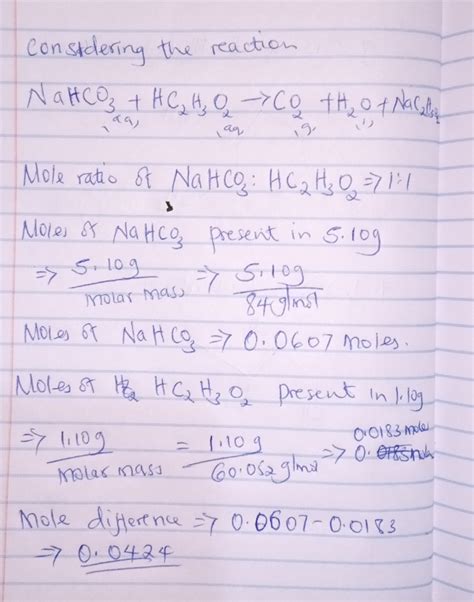 Considering the reaction
NaHCO3 + HC2H3O2 → CO2 + H2O + NaC2H3O2
(aq) (aq) (g) (l)
Mole ratio of NaHCO3 : HC2H3O2 ⇒ 1:1
Moles of NaHCO3 present in 5.10g
⇒ 5.10g / molar mass ⇒ 5.10g / 84 g/mol
Moles of NaHCO3 ⇒ 0.0607 moles.
Moles of HC2H3O2 present in 1.10g
⇒ 1.10g / molar mass = 1.10g / 60.052 g/mol ⇒ 0.0183 mole
Mole difference ⇒ 0.0607 - 0.0183
⇒ 0.0424